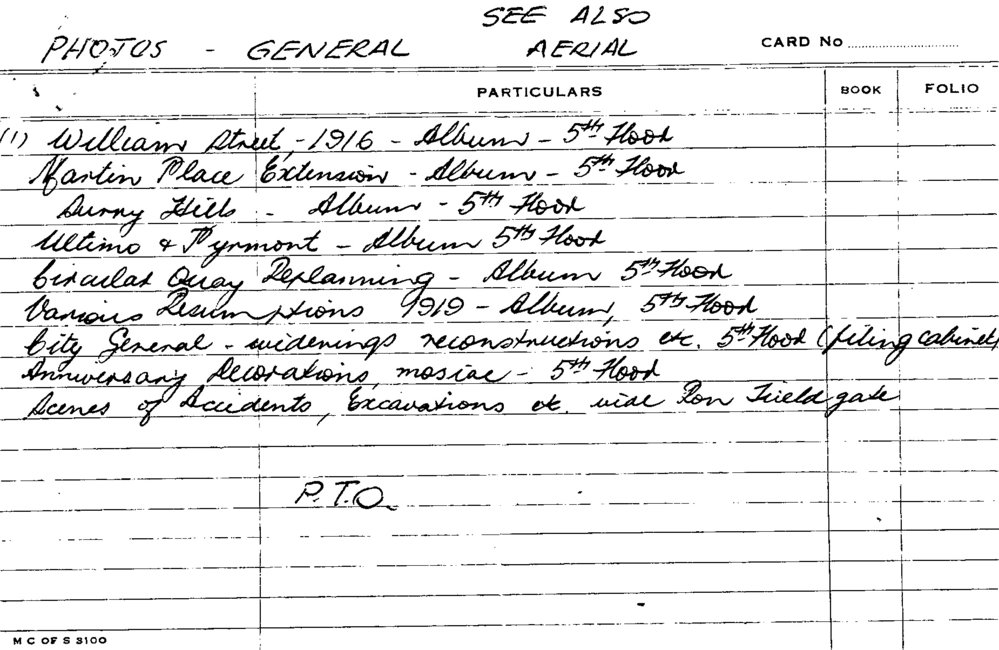 SEE ALSO
PHOTOS - GENERAL AERIAL CARD No
PARTICULARS BOOK FOLIO
(1) William Street, - 1916 - Album - 5th Floor
Martin Place Extension - Album - 5th Floor
Surry Hills - Album - 5th Floor
Ultimo & Pyrmont - Album 5th Floor
Circular Quay Replanning - Album 5th Floor
Various Resumptions 1919 - Album, 5th Floor
City General - widenings reconstructions etc. 5th Floor (filing cabinet)
Anniversary Decorations, mosiac - 5th Floor
Scenes of Accidents, Excavations etc. vide Ron Fieldgate
P.T.O.
M C OF S 3100